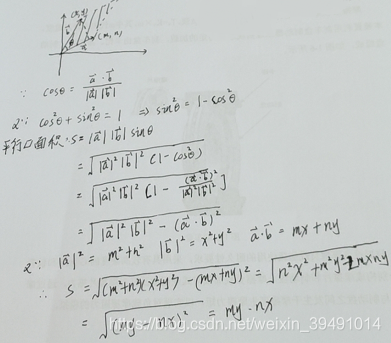 (x, y)
b
θ
a
(m, n)
∵ cosθ = a⃗ · b⃗ / |a⃗| |b⃗|
又∵ cos²θ + sin²θ = 1 ⇒ sin²θ = 1 - cos²θ
平行□面积: S = |a⃗| |b⃗| sinθ
= √(|a⃗|² |b⃗|² (1 - cos²θ))
= √(|a⃗|² |b⃗|² [1 - (a⃗·b⃗)² / |a⃗|²|b⃗|²])
= √(|a⃗|² |b⃗|² - (a⃗·b⃗)²)
又∵ |a⃗|² = m² + n² |b⃗|² = x² + y² a⃗·b⃗ = mx + ny
∴ S = √((m²+n²)(x²+y²) - (mx+ny)²) = √(n²x² + m²y² - 2mxny)
= √((my - nx)²) = my - nx
https://blog.csdn.net/weixin_39491014